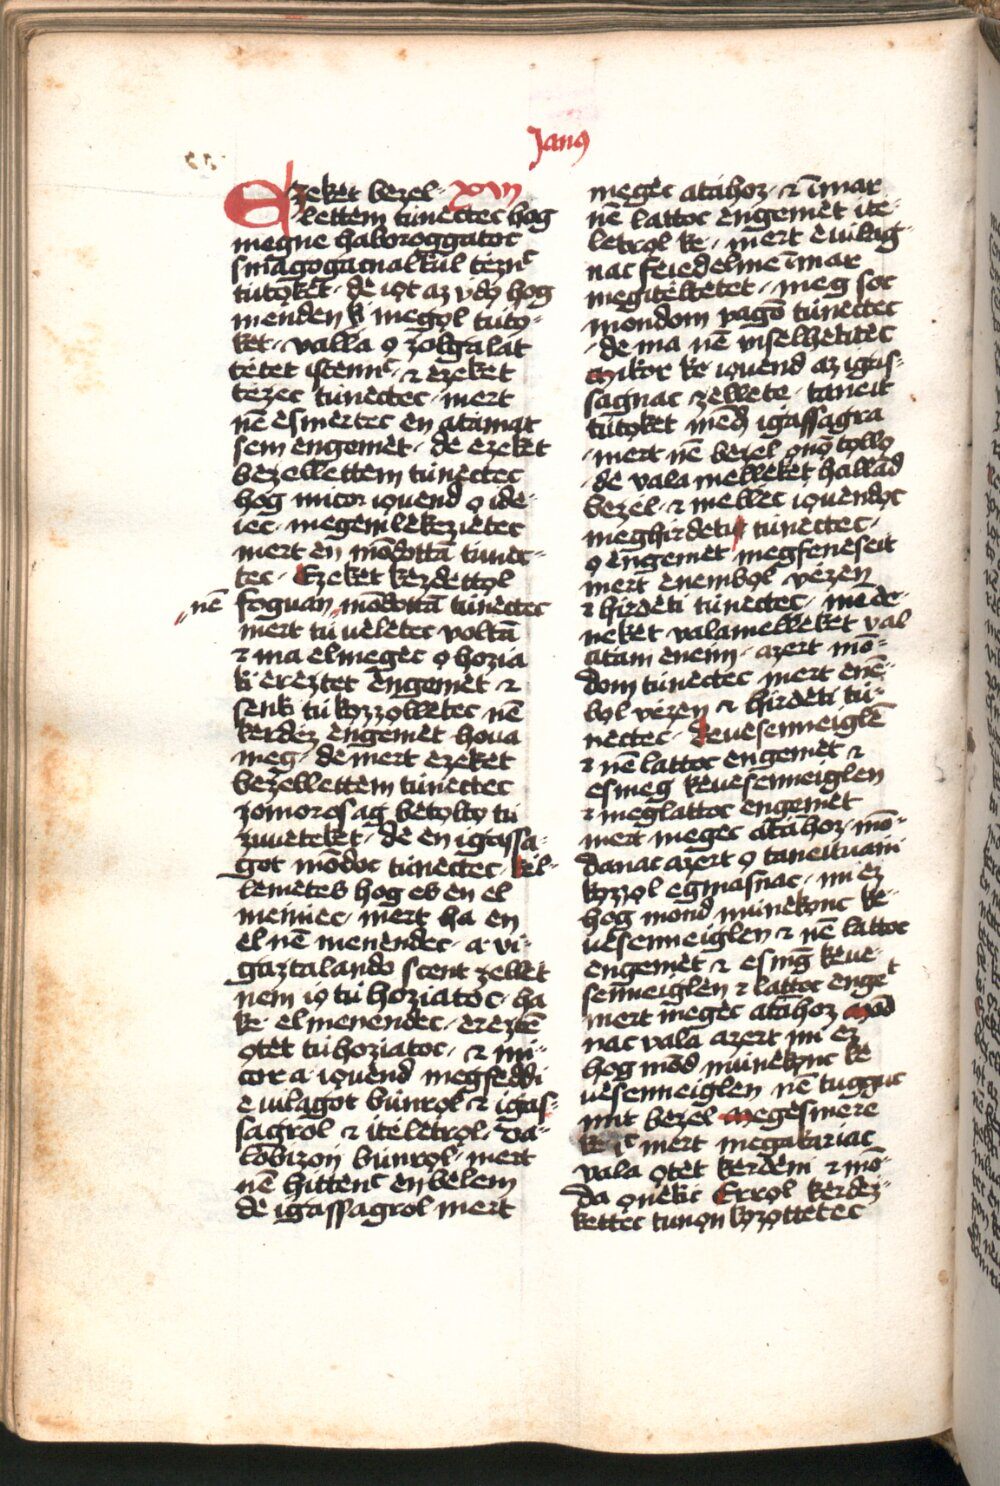 Janꝰ
Ezeket bezel- XVI
lettem tunectec hog
megne haboroggatoc
sinagogacnalkul tèznc
tutoket · de iot az vdo hog
menden ki megol tuto-
ket · valla o zolgalat
tètet istennc · ⁊ ezeket
tezec tunectec · mert
nē èsmertec en atamat
sem engemèt · de ezeket
bezellettem tunectec
hog micor iouend o ide-
iec · megemlekezietec
mert en mōdottā tunec-
tec · Ezeket kezdettol
nē foguan mōdottā tunectec
mert tu vèletec voltā
⁊ ma elmegec o hozia
ki ereztet èngemèt ⁊
senki tu kozzolletec nē
kerdez èngemet houa
meg · de mert ezeket
bezellettem tunectec
zomorosag betolto tu
zuueteket · de en igassa-
got mōdoc tunectec · kel-
lemetes hog es en el
mèniec · mert ha en
el nē menendec · a vi-
gaztalando scent zellet
nem io tu hoziatoc · ha
ke · el menendec · erezte
otet tu hoziatoc · ⁊ mi-
cor a · iouend megfeddi
e vilagot bunrol ⁊ igas-
sagrol ⁊ itèletrol · va-
lobizon bunrol · mert
nē hittenc en belem
de igassagrol mert
megèc atahoz · ⁊ imar
nē lattoc èngemèt ite-
letrol ke · mert e vilag-
nac feiedelme imar
megiteltetèt · meg soc
mondom vagō tunectec
· de ma nē viselhetitec
Mikor ke iouend az igas-
sagnac zellete · taneit
tutoket mēd igassagra
· mert nē bezel onō tollo
· de vala melleket hallād
bezel · ⁊ mellec iouendoc
meghirdeti tunectec ·
o èngemet megfeneseit
mert enembol vèzen
⁊ hirdèti tunectec · mēde-
neket valamelleket val
atam eneim · azert mō-
dom tunectec mert enē-
bol vèzen ⁊ hirdeti tu-
nectec · keuesenneiglē
⁊ nē lattoc engemèt ⁊
esmeg keuesenneiglen
⁊ meglattoc engemèt
mert megec atahoz · mō-
danac azert o taneituani
kozzol egmasnac · mi ez
hog mond muneconc ke-
uèsenneiglen ⁊ nē lattoc
èngemèt ⁊ esmēg keue-
senneiglen ⁊ lattoc enge t
mert megèc atahoz Mōd
nac vala azert mi ez
hog mōd muneconc ke
uèsenneiglen nē tugguc
mit bezel Megèsmere
ke ic mert megakariac
vala otèt kerdèni ⁊ mō-
da onèkic Errol kerdez-
kettec tunon kozottetec